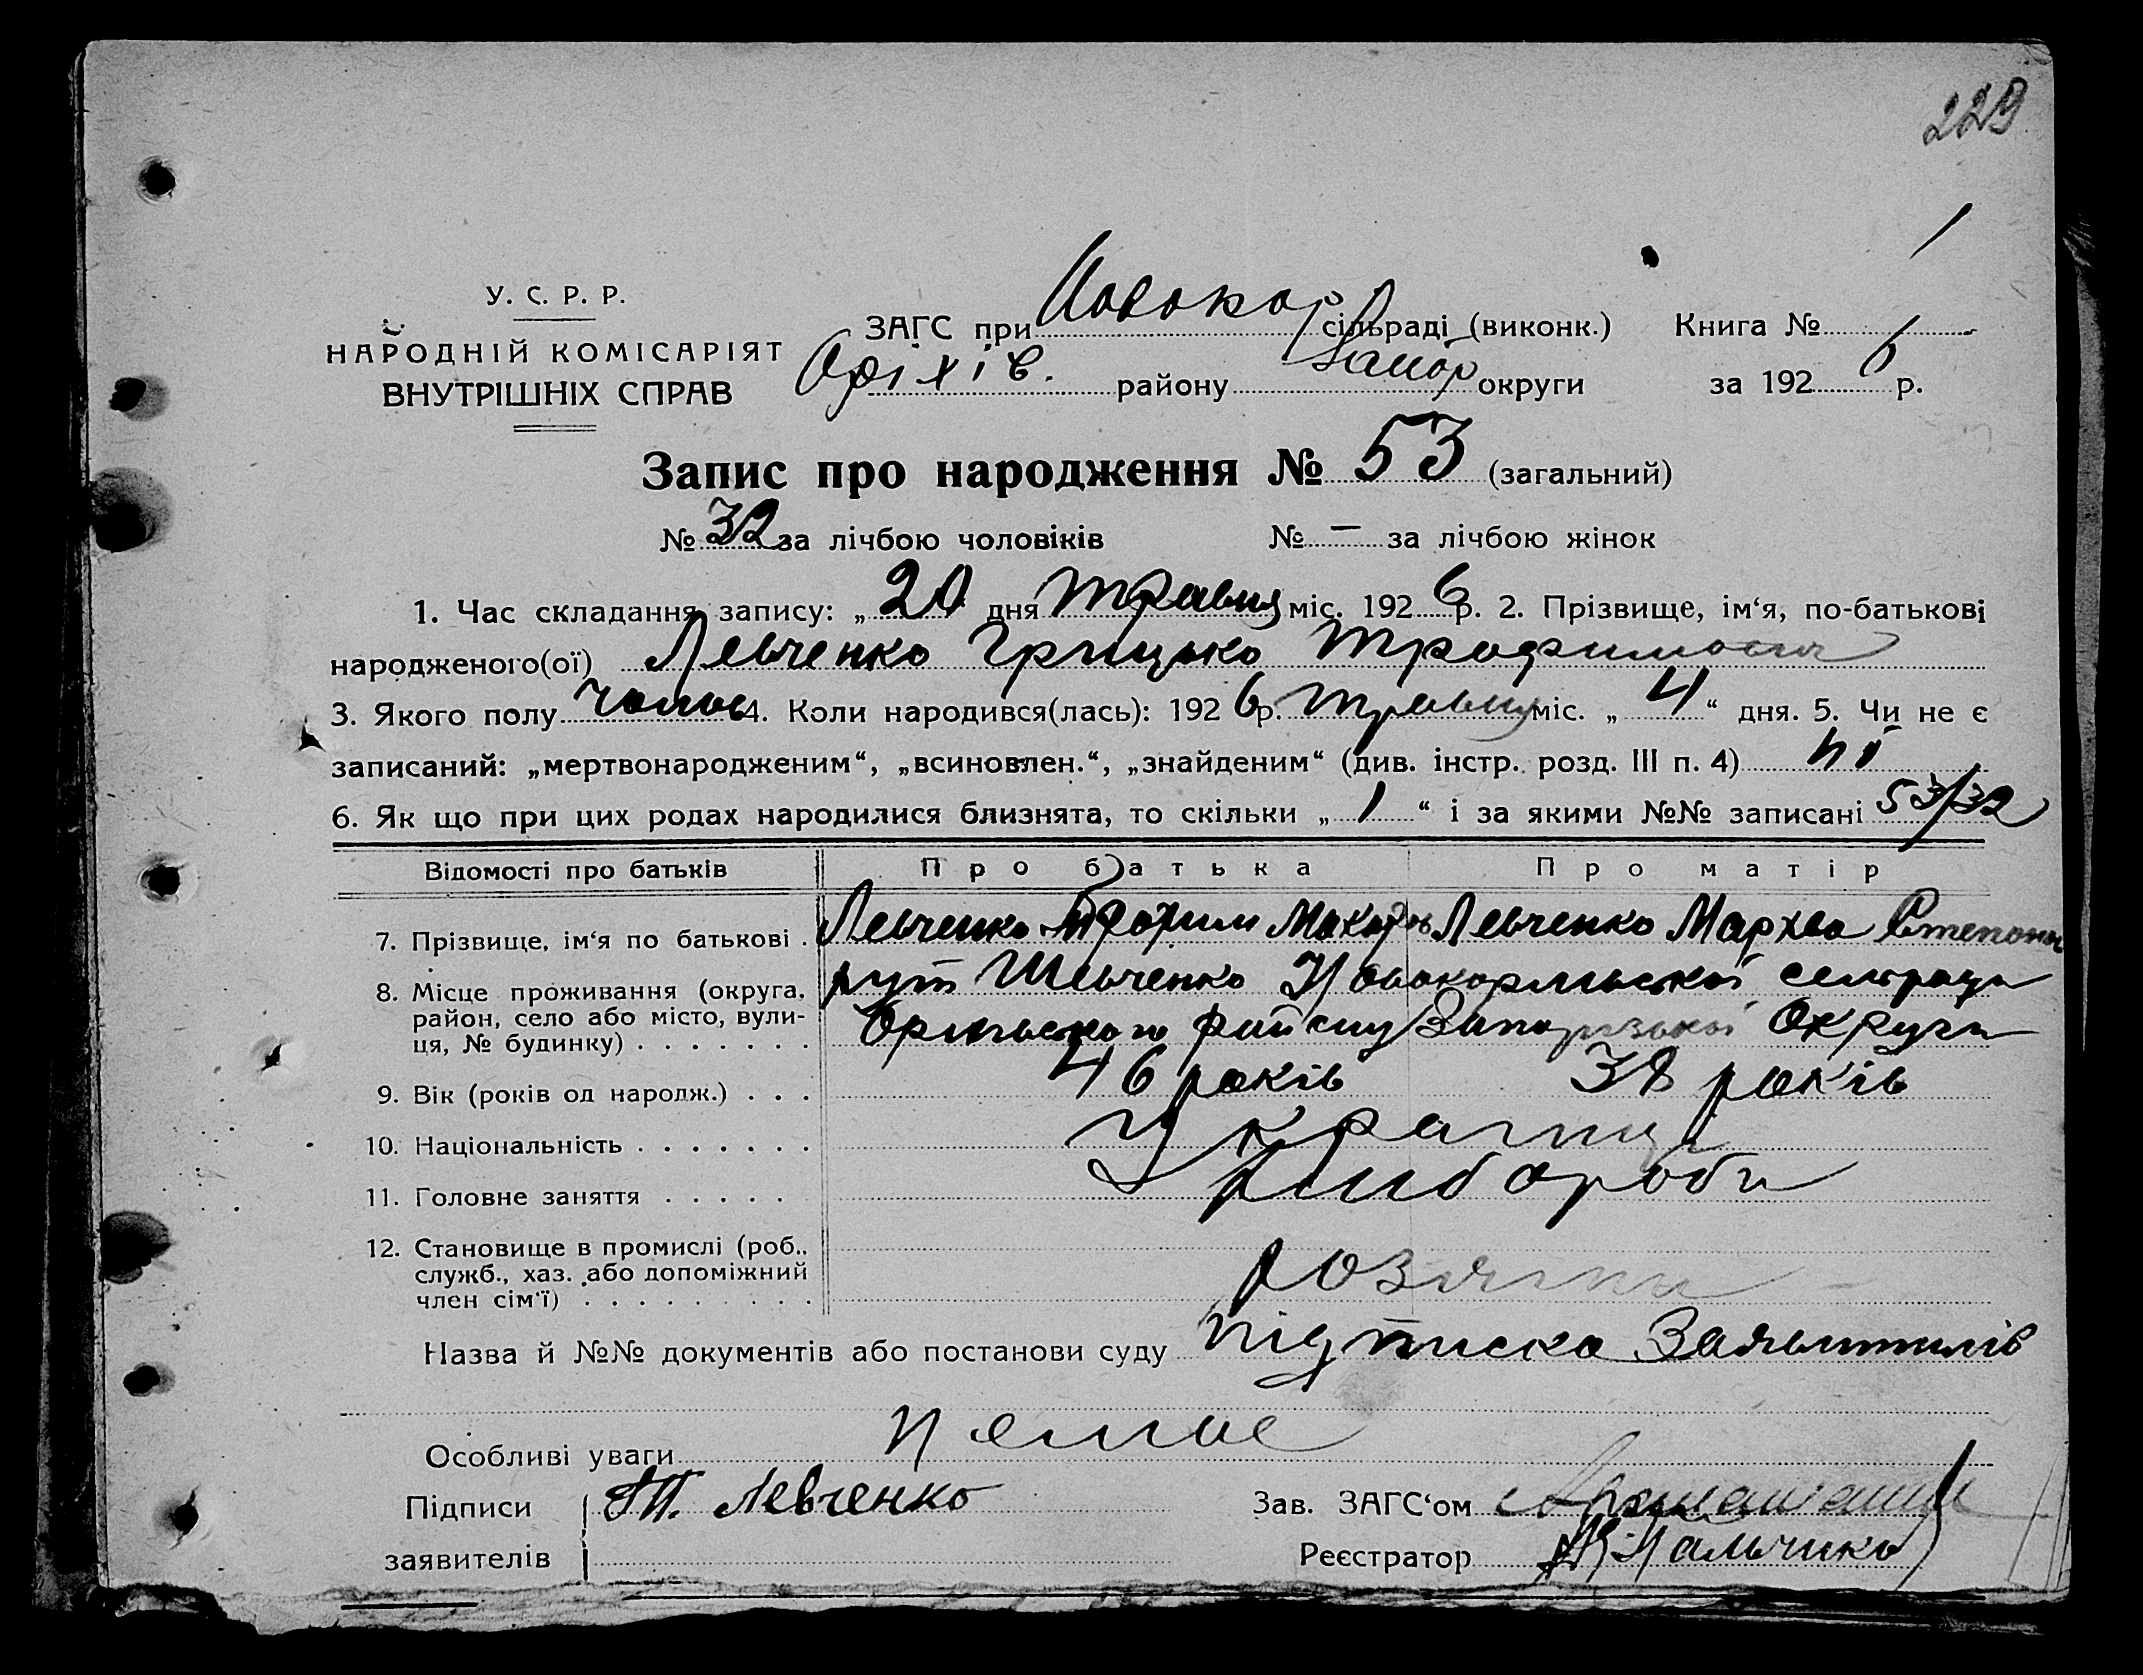 229
У. С. Р. Р.
НАРОДНІЙ КОМІСАРІЯТ
ВНУТРІШНІХ СПРАВ
ЗАГС при Новокар сільраді (виконк.) Книга № 1
Оріхів. району Запор округи за 1926 р.
Запис про народження № 53 (загальний)
№ 32 за лічбою чоловіків № — за лічбою жінок
1. Час складання запису: „ 20 дня Травня міс. 1926 р. 2. Прізвище, ім‘я, по-батькові
народженого(ої) Левченко Грицько Трофимович
3. Якого полу чолов 4. Коли народився(лась): 1926 р. Травня міс. „ 4 “ дня. 5. Чи не є
записаний: „мертвонародженим“, „всиновлен.“, „знайденим“ (див. інстр. розд. III п. 4) ні
6. Як що при цих родах народилися близнята, то скільки „ 1 “ і за якими №№ записані 53/32
Відомості про батьків Про батька Про матір
7. Прізвище, ім‘я по батькові . Левченко Трофим Макаров Левченко Мархва Степанов
8. Місце проживання (округа, район, село або місто, вулиця, № будинку) . . . . . . . Шевченко
району Округи
9. Вік (років од народж.) . . . 46 років 38 років
10. Національність . . . . . . . Українці
11. Головне заняття . . . . . Хлібороби
12. Становище в промислі (роб., служб., хаз. або допоміжний член сім‘ї) . . . . . . . . .
Назва й №№ документів або постанови суду підписка Заявителів
Особливі уваги немає
Підписи Т. Левченко Зав. ЗАГС‘ом
заявителів Реєстратор